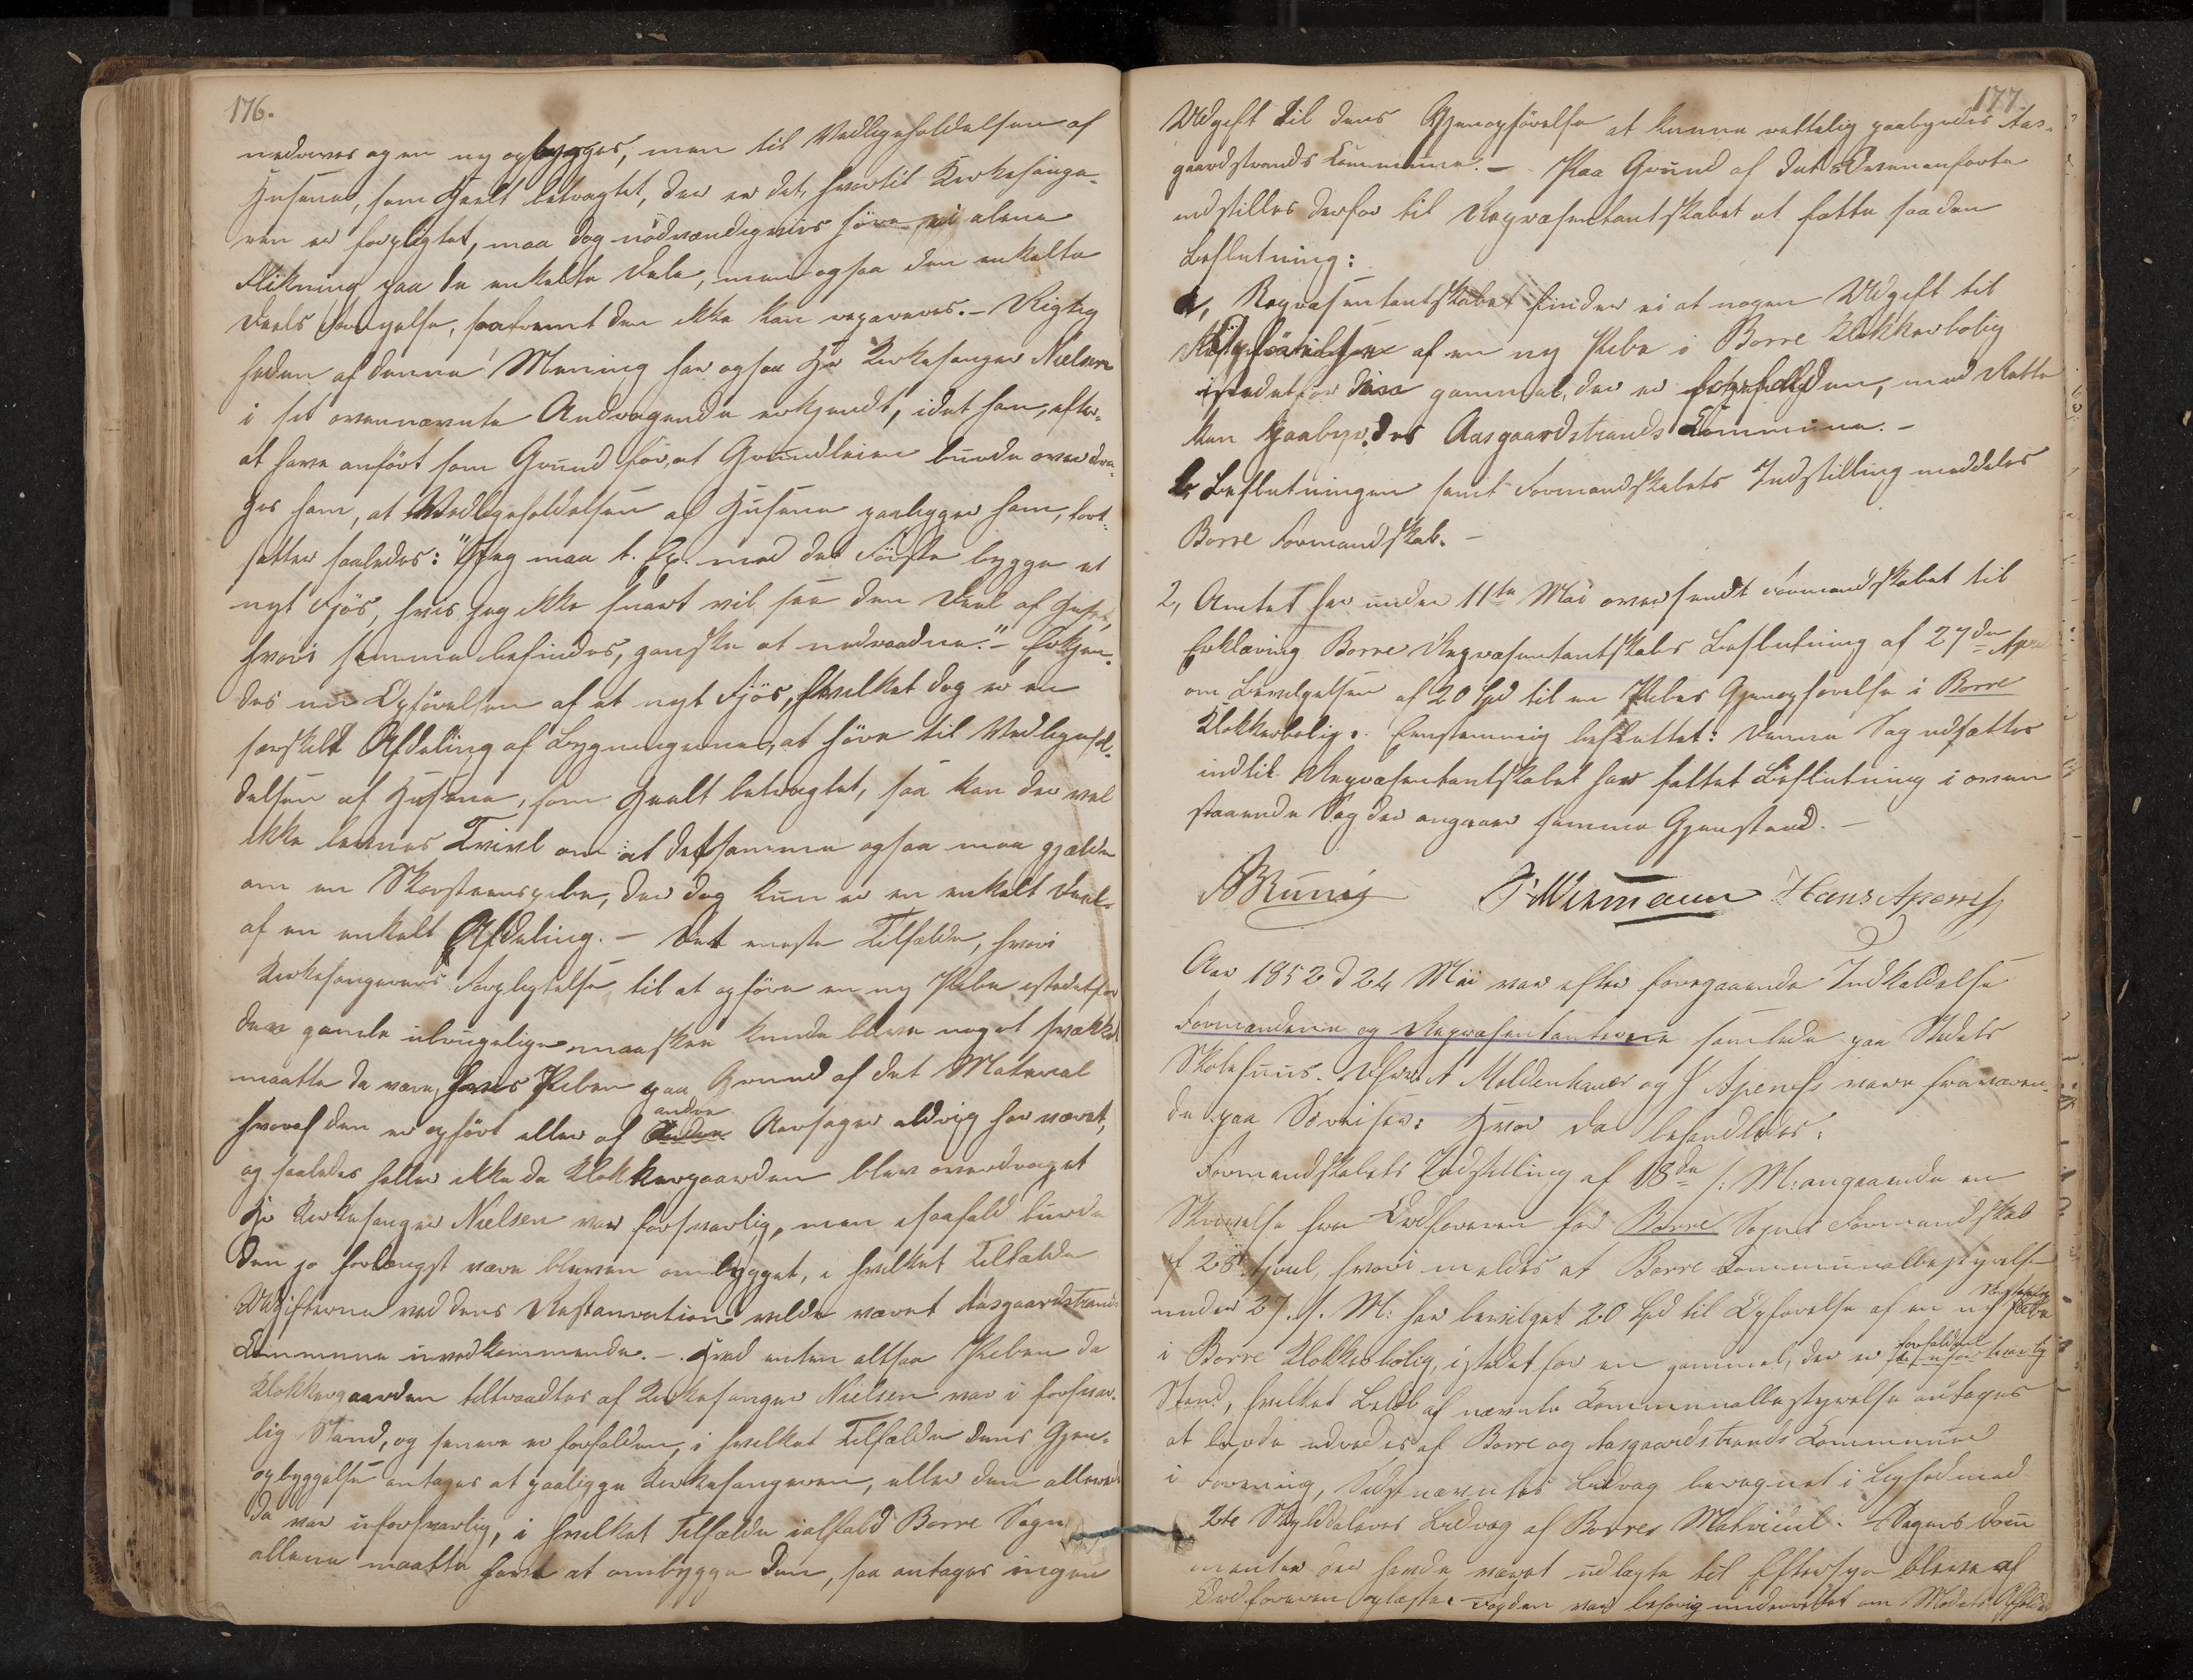 176.
nedrives og en ny opbygges, men til Vedligeholdelsen af
Husene, som Heelt betragtet, der er det, hvortil Kirkesange-
ren er forpligtet, maa dog nödvendigviis höre ei alene
Flikning paa de enkelte Dele, men ogsaa den enkelte
Deels Fornyelse, saafremt den ikke kan repareres. - Rigtig
heden af denne Mening har ogsaa Hr Kirkesanger Nielsen
i sit ovennævnte Andragende erkjendt, idet han, efter
at have anfört som Grund for, at Grundleien burde overdra-
ges ham, at Vedligeholdelsen af Husene paaligger ham, fort-
sætter saaledes: "Jeg maa t. Ex. med det Förste bygge et
nyt Fjös, hvis jeg ikke snart vil see den Deel af Huset,
hvori samme befindes, ganske at nedraadne." - Erkjen-
des nu Opförelsen af et nyt Fjös, hvilket dog er en
særskilt Afdeling af Bygningerne, at höre til Vedligehol-
delsen af Husene, som Heelt betragtet, saa kan der vel
ikke levnes Tvivl om at detsamme ogsaa maa gjælde
om en Skorsteenspibe, der dog kun er en enkelt Deel
af en enkelt Afdeling. - Det eneste Tilfælde, hvori
Kirkesangerens Forpligtelse til at opföre en ny Pibe istedetfor
den gamle ubrugelige maaskee kunde blive noget svækket
maatte da være, hvis Piben paa Grund af det Material
hvoraf den er opfört eller af andre Aarsager aldrig har været,
og saaledes heller ikke da Klokkergaarden blev overdraget
Hr Kirkesanger Nielsen var forsvarlig, men isaafald burde
den jo forlængst være bleven ombygget, i hvilket Tilfælde
Udgifterne ved dens Restauration vilde været Aasgaardstrands
Commune uvedkommende. - Hvad enten altsaa Piben da
Klokkergaarden tiltraadtes af Kirkesanger Nielsen var i forsvar-
lig Stand, og senere er forfalden, i hvilket Tilfælde dens Gjen-
opbyggelse antages at paaligge Kirkesangeren, eller den allerede
da var uforsvarlig, i hvilket Tilfælde ialfald Borre Sogn
allene maatte have at ombygge den, saa antages ingen
177.
Udgift til dens Gjenopförelse at kunne rettelig paabyrdes Aas-
gaardstrands Commune. - Paa Grund af det Ovenanförte
indstilles derfor til Repræsentantskabet at fatte saadan
Beslutning:
a, Repræsentantskabet finder ei at nogen Udgift til
Opförelsen af en ny Pibe i Borre Klokkerbolig
istedetfor den gamle, der er forfalden, med Rette
kan paabyrdes Aasgaardstrands Commune. -
b, Beslutningen samt Formandskabets Indstilling meddeles
Borre Formandskab. -
2, Amtet har under 11te Mai oversendt Formandskabet til
Erklæring Borre Repræsentantskabs Beslutning af 27de April
om Bevilgelsen af 20 Spd til en Pibes Gjenopförelse i Borre
Klokkerbolig. Eenstemmig besluttet: Denne Sag udsættes
indtil Repræsentantskabet har fattet Beslutning i oven
staaende Sag der angaaer samme Gjenstand. -
Hans Apenes
Aar 1852 d 24 Mai var efter foregaaende Indkaldelse
Formændene og Repræsentanterne samlede paa Stedets
Skolehuus. Moldenhauer og J Apenes vare fraværen-
de paa Söreiser: Hvor da behandledes:
Formandskabets Indstilling af 18de s: M: angaaende en
Skrivelse fra Ordföreren for Borre Sogns Formandskab
af 28 April, hvori meldes at Borre Communalbestyrelse
under 27. s. M: har bevilget 20 Spd til Opförelse af en ny Pibe
i Borre Klokkerbolig, istedet for en gammel, der er forfalden
Stand, hvilket Belöb af nævnte Communalbestyrelse antages
at burde udredes af Borre og Aasgaardstrands Commune
i Forening, sidstnævntes Bidrag beregnet i Lighed med
2te Skylddalers Bidrag af Borres Matricul. Sagens Docu
menter der havde været udlagte til Eftersyn bleve af
Ordföreren oplæste. Fogden var behörig underrettet om Mödets Afholdelse